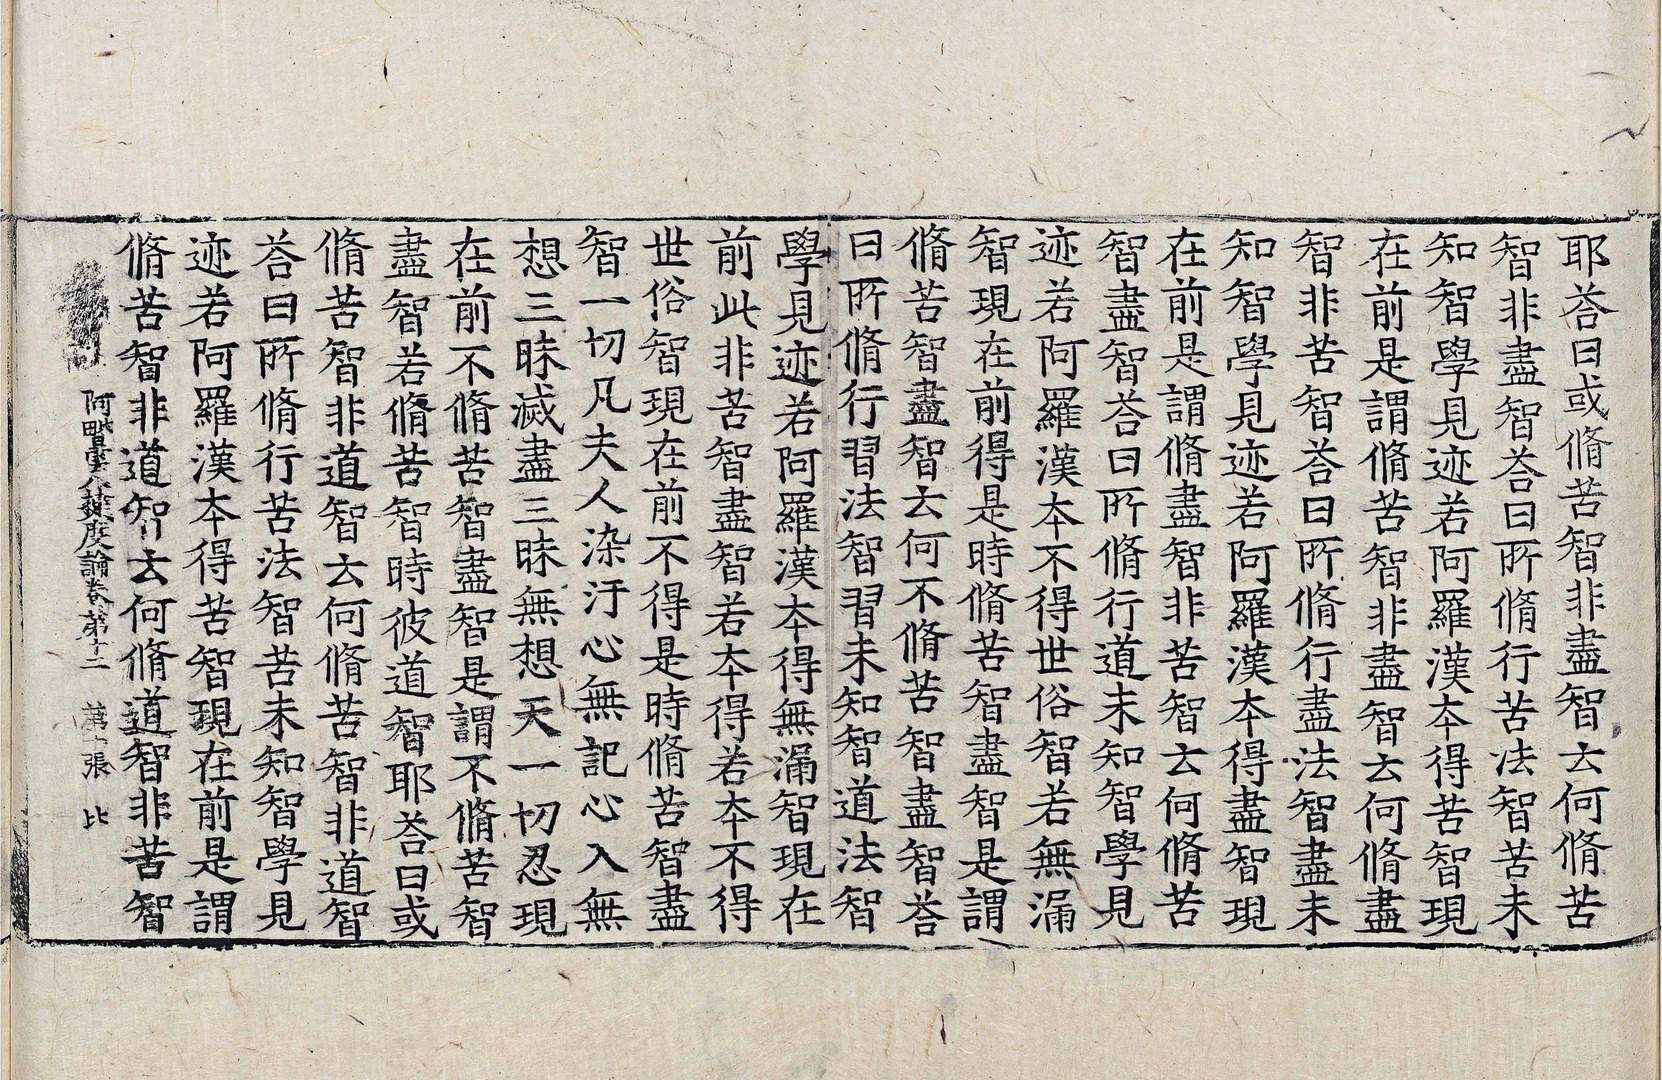 耶荅曰或脩苦智非盡智云何脩苦
智非盡智荅曰所脩行苦法智苦未
知智學見迹若阿羅漢本得苦智現
在前是謂脩苦智非盡智云何脩盡
智非苦智荅曰所脩行盡法智盡未
知智學見迹若阿羅漢本得盡智現
在前是謂脩盡智非苦智云何脩苦
智盡智荅曰所脩行道未知智學見
迹若阿羅漢本不得世俗智若無漏
智現在前得是時脩苦智盡智是謂
脩苦智盡智云何不脩苦智盡智荅
曰所脩行習法智習未知智道法智
學見迹若阿羅漢本得無漏智現在
前此非苦智盡智若本得若本不得
世俗智現在前不得是時脩苦智盡
智一切凡夫人染汙心無記心入無
想三昧滅盡三昧無想天一切忍現
在前不脩苦智盡智是謂不脩苦智
盡智若脩苦智時彼道智耶荅曰或
脩苦智非道智云何脩苦智非道智
荅曰所脩行苦法智苦未知智學見
迹若阿羅漢本得苦智現在前是謂
脩苦智非道智云何脩道智非苦智
阿毗曇八揵度論卷第十二 第 張 比